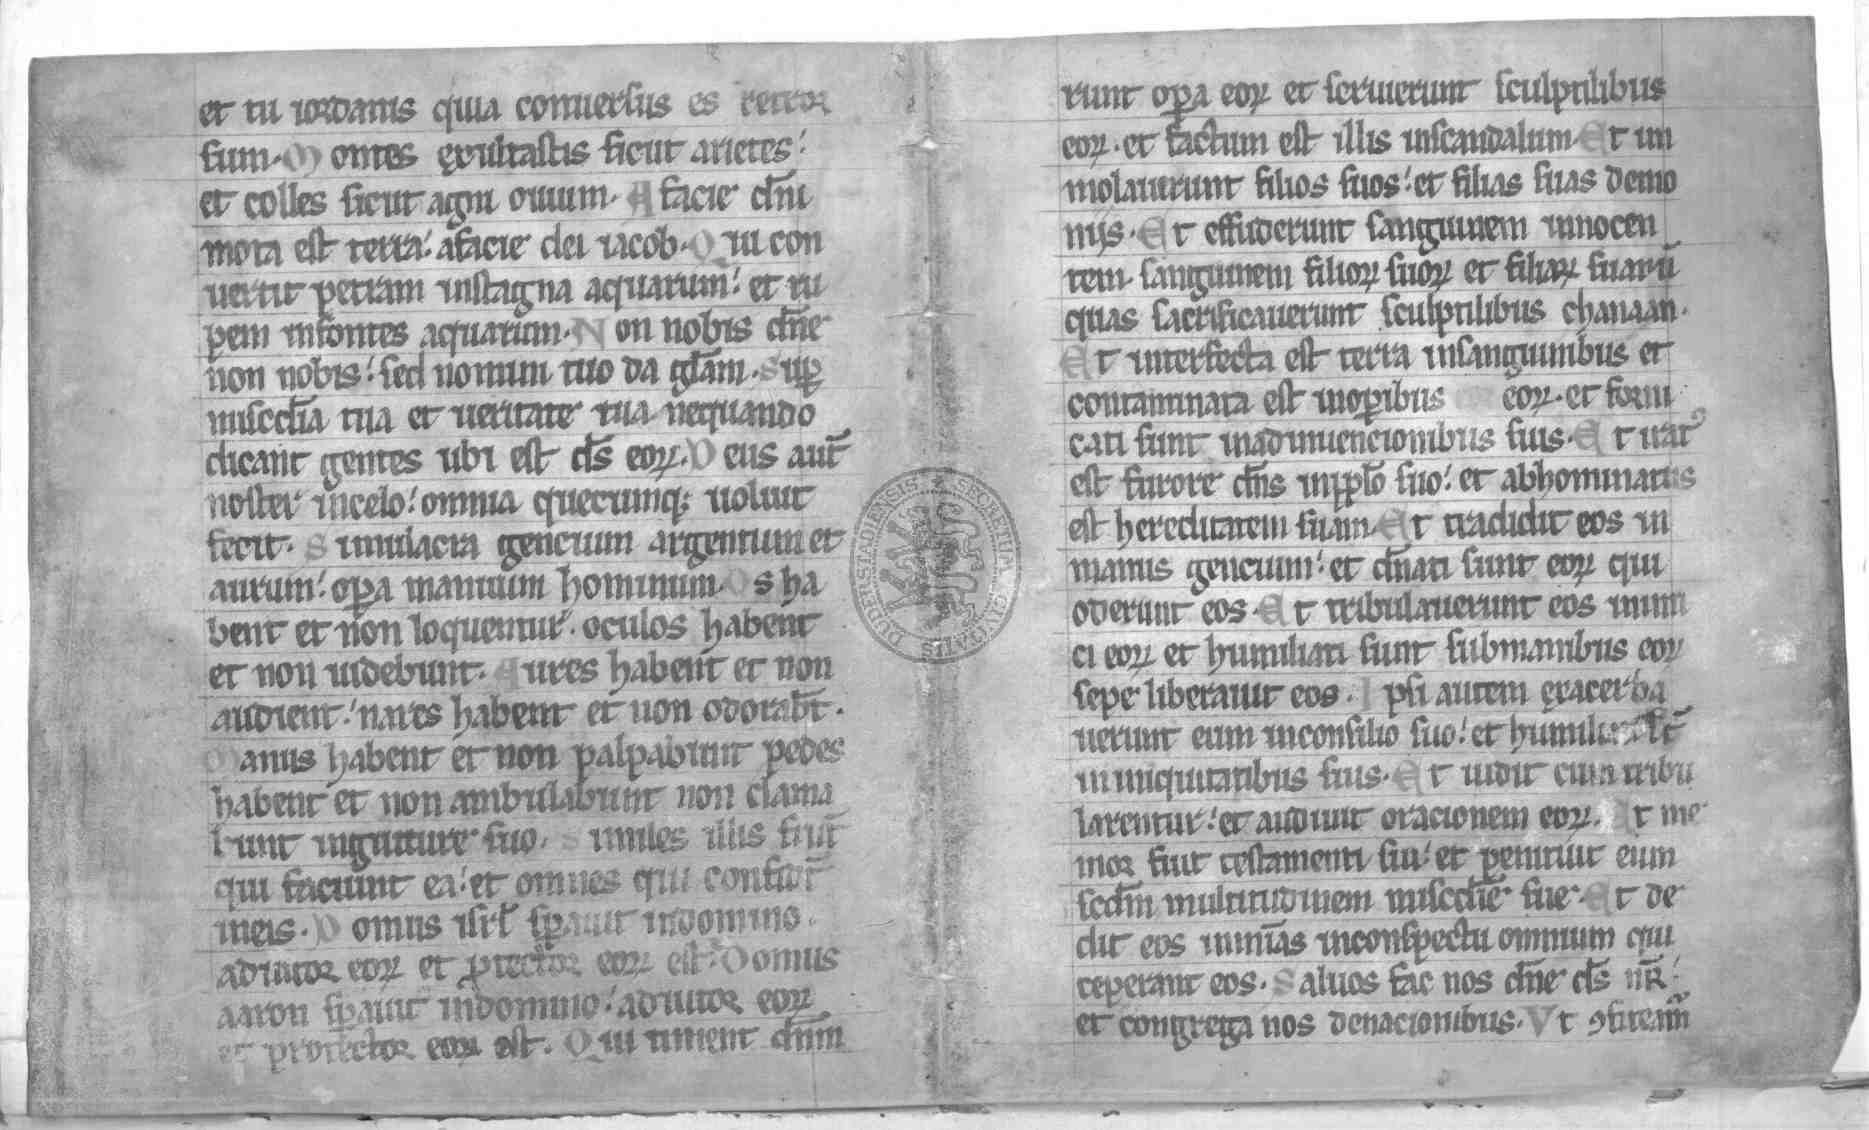 et tu iordanis quia conuersus es retror
sum. Montes exultastis sicut arietes:
et colles sicut agni ouium. A facie dñi
mota est terra: afacie dei iacob. Qui con
uertit petram instagna aquarum: et ru
pem infontes aquarum. Non nobis dñe
non nobis: sed nomini tuo da gl̃am. Suꝑ
misc̃dia tua et ueritate tua nequando
dicant gentes ubi est ds̃ eoꝝ. Deus aut̃
noster incelo: omnia quecunqꝫ uoluit
fecit. Simulacra gencium argentum et
aurum: oꝑa manuum hominum. Os ha
bent et non loquentur. oculos habent
et non uidebunt. Aures habent et non
audient: nares habent et non odorab̃t.
Manus habent et non palpabunt pedes
habent et non ambulabunt non clama
bunt ingutture suo. Similes illis fiũt
qui faciunt ea: et omnes qui confidũt
ineis. Domus isrl̃ sꝑauit indomino.
adiutor eoꝝ et ꝓtector eoꝝ est: Domus
aaron sꝑauit indomino: adiutor eoꝝ
et protector eoꝝ est. Qui timent dñm
runt oꝑa eoꝝ et seruierunt sculptilibus
eoꝝ. et factum est illis inscandalum. Et im
molauerunt filios suos: et filias suas demo
nijs. Et effuderunt sanguinem innocen
tem. sanguinem filioꝝ suoꝝ et filiaꝝ suarũ
quas sacrificauerunt sculptilibus chanaan.
Et interfecta est terra insanguinibus et
contaminata est inoꝑibus eoꝝ. et forni
cati sunt inadinuencionibus suis. Et irat᷒
est furore dñs inpp̃lo suo: et abhominatus
est hereditatem suam. Et tradidit eos in
manus gencium: et dñati sunt eoꝝ qui
oderunt eos. Et tribulauerunt eos inimi
ci eoꝝ et humiliati sunt submanibus eoꝝ
sepe liberauit eos. Ipsi autem exacerba
uerunt eum inconsilio suo: et humiliati st̃
in iniquitatibus suis. Et uidit cum tribu
larentur: et audiuit oracionem eoꝝ. Et me
mor fuit testamenti sui: et penituit eum
scd̃m multitudinem misc̃die sue. Et de
dit eos inmĩas inconspectu omnium qui
ceperant eos. Saluos fac nos dñe ds̃ nr̃:
et congrega nos denacionibus. Vt ꝯfiteam᷒
DUDERSTADIENSIS SECRETUM CIVITATIS